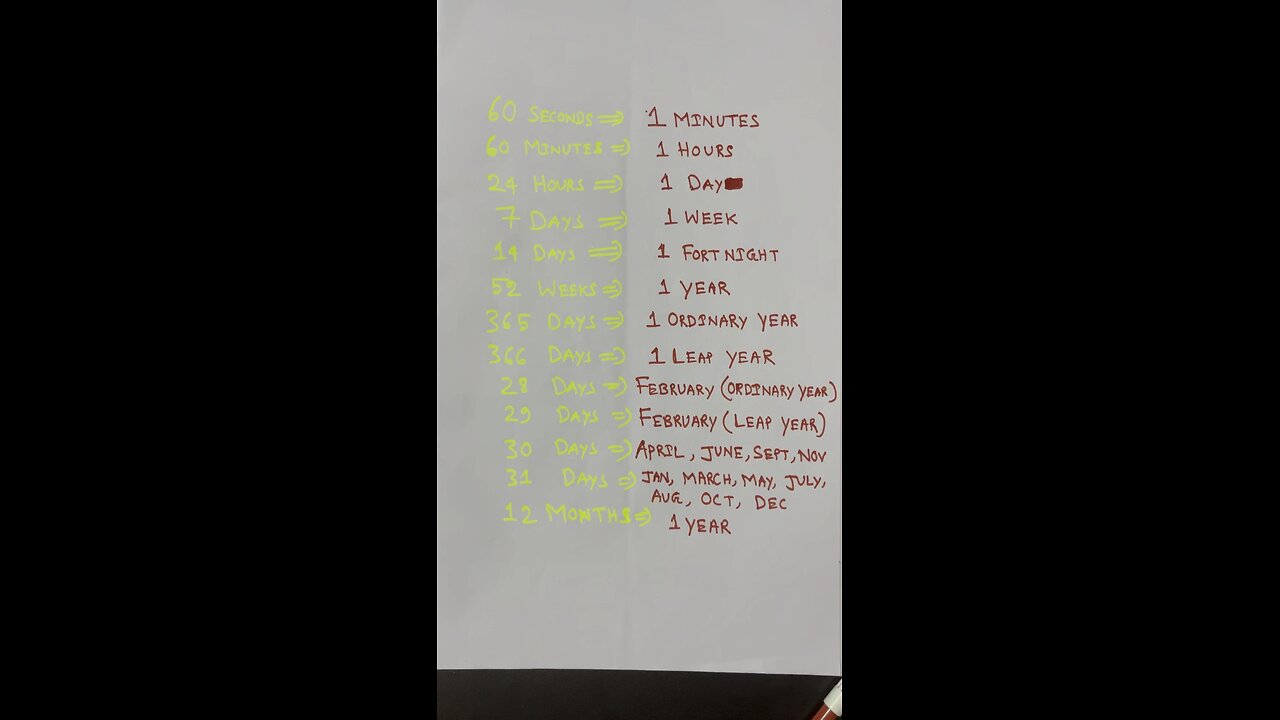 60 SECONDS ⇒ 1 MINUTES
60 MINUTES ⇒ 1 HOURS
24 HOURS ⇒ 1 DAY
7 DAYS ⇒ 1 WEEK
14 DAYS ⇒ 1 FORTNIGHT
52 WEEKS ⇒ 1 YEAR
365 DAYS ⇒ 1 ORDINARY YEAR
366 DAYS ⇒ 1 LEAP YEAR
28 DAYS ⇒ FEBRUARY (ORDINARY YEAR)
29 DAYS ⇒ FEBRUARY (LEAP YEAR)
30 DAYS ⇒ APRIL, JUNE, SEPT, NOV
31 DAYS ⇒ JAN, MARCH, MAY, JULY,
AUG, OCT, DEC
12 MONTHS ⇒ 1 YEAR